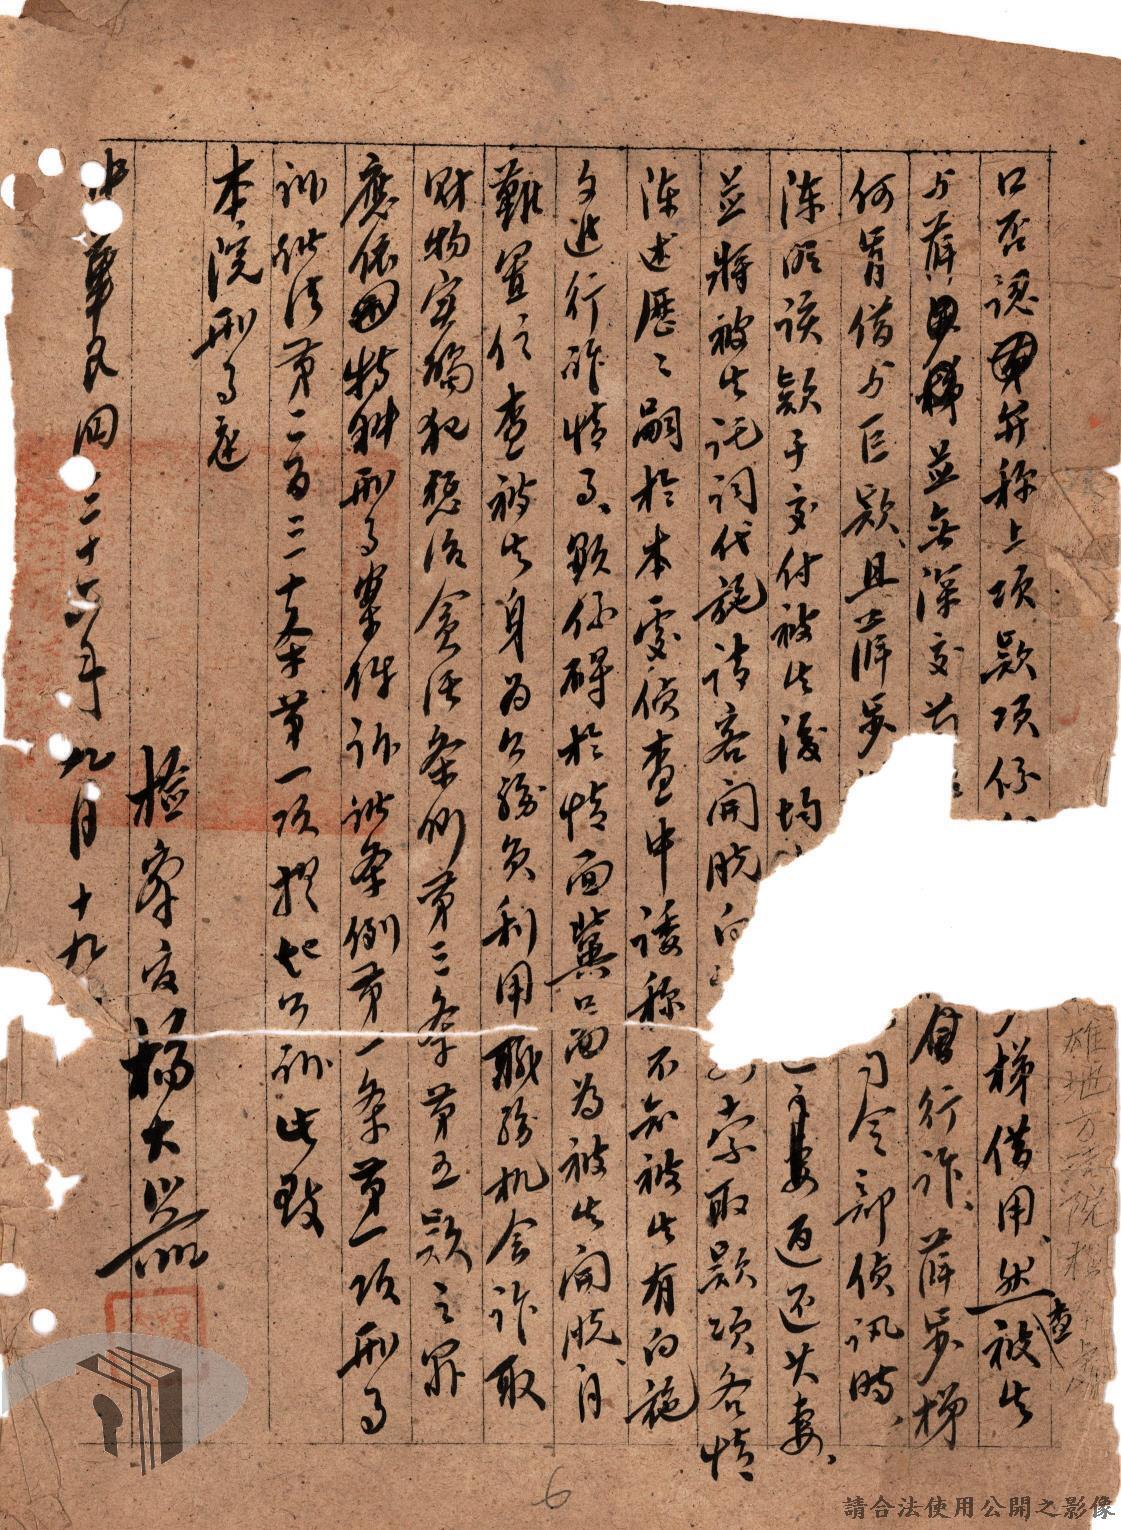 口否認並稱上項款項係 步梯借用、然查被告
与薛步梯並無深交 會行詐、薛步梯
何肯借与巨款、且薛步 司令部偵訊時、
陳明該款于交付被告後均 妻返还其妻、
並將被告託詞代施請客開脫向 索取款項各情
陳述歷々嗣於本處偵查中諉称不知被告有向施
文進行詐情事、顯係碍於情面冀图為被告開脫、自
難置信查被告身為公務員利用職務机会詐取
財物实觸犯懲治貪污条例第三条第五款之罪
應依特种刑事案件訴訟条例第一条第一項刑事
訴訟法第二百三十条第一項提起公訴此致
本院刑事庭
檢察官楊大
中華民國三十六年九月十九
雄地方法院檢
6
請合法使用公開之影像